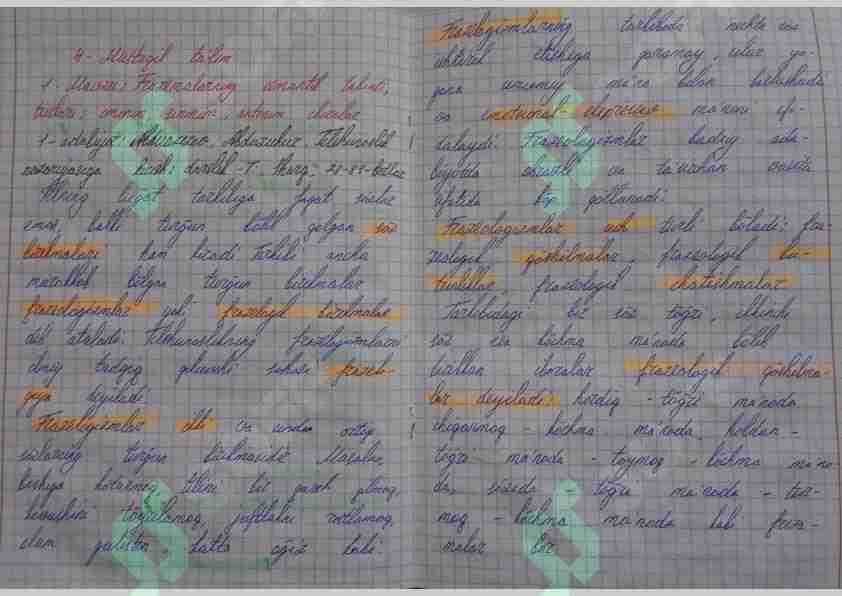 4- Mustaqil ta'lim
1- Mavzu: Frazemalarning semantik tabiati,
turlari: omonim, sinonim, antonim iboralar
1-adabiyot: Abduzuhur, Tilshunoslik
nazariyasiga kirish: darslik -T: Sharq,
Tilning lug'at tarkibiga faqat so'zlar
emas, balki turg'un bo'lib qolgan so'z
birikmalari ham kiradi. Tarkibi ancha
murakkab bo'lgan turg'un birikmalar
frazeologizmlar yoki frazeologik birikmalar
deb ataladi. Tilshunoslikning frazeologizmlarni
ilmiy tadqiq qiluvchi sohasi frazeolo-
giya deyiladi.
Frazeologizmlar ikki va undan ortiq
so'zlarning turg'un birikmasidir. Masalan,
boshga ko'tarmoq, tilini bir qarich qilmoq,
kavushini to'g'rilamoq, juftakni rostlamoq,
dam guliston, katta og'iz kabi.
Frazeologizmlarning tarkibida nechta so'z
ishtirok etishiga qaramay, ular ya-
gona umumiy ma'no bilan birlashadi
va emotsional-ekspressiv ma'noni ifo-
dalaydi. Frazeologizmlar badiiy ada-
biyotda obrazli va ta'sirchan vosita
sifatida qo'llanadi.
Frazeologizmlar uch turli bo'ladi: fra-
zeologik qo'shilmalar, frazeologik bu-
tunliklar, frazeologik chatishmalar
Tarkibidagi bir so'z to'g'ri, ikkinchi
so'z esa ko'chma ma'noda bo'lib
birikkan iboralar frazeologik qo'shilma-
lar deyiladi: ko'rdiq - to'g'ri ma'noda
chiqarmoq - ko'chma ma'noda, holdan -
to'g'ri ma'noda - toymoq - ko'chma ma'no-
da, so'zida - to'g'ri ma'noda - tur-
moq - ko'chma ma'noda kabi fraze-
malar bor